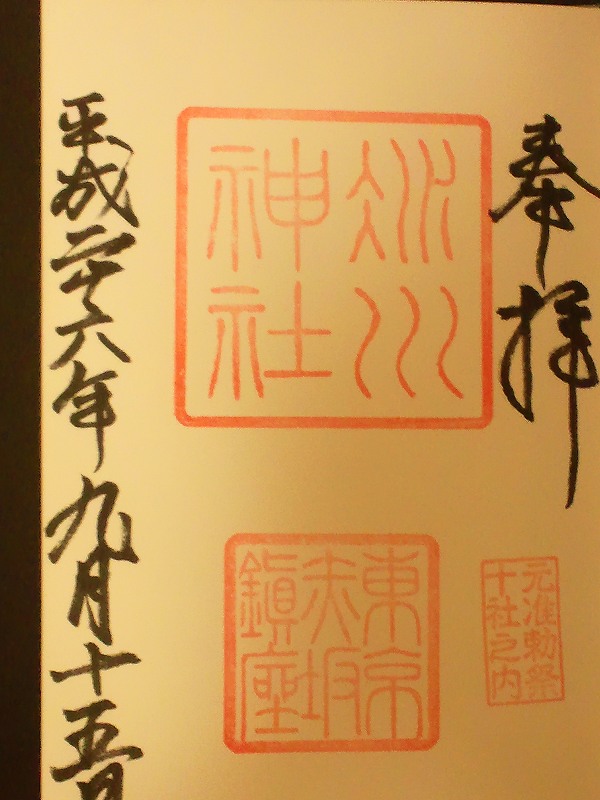 奉拝
氷川
神社
東京
赤坂
鎮座
元准勅祭
十社之内
平成二十六年九月十五日